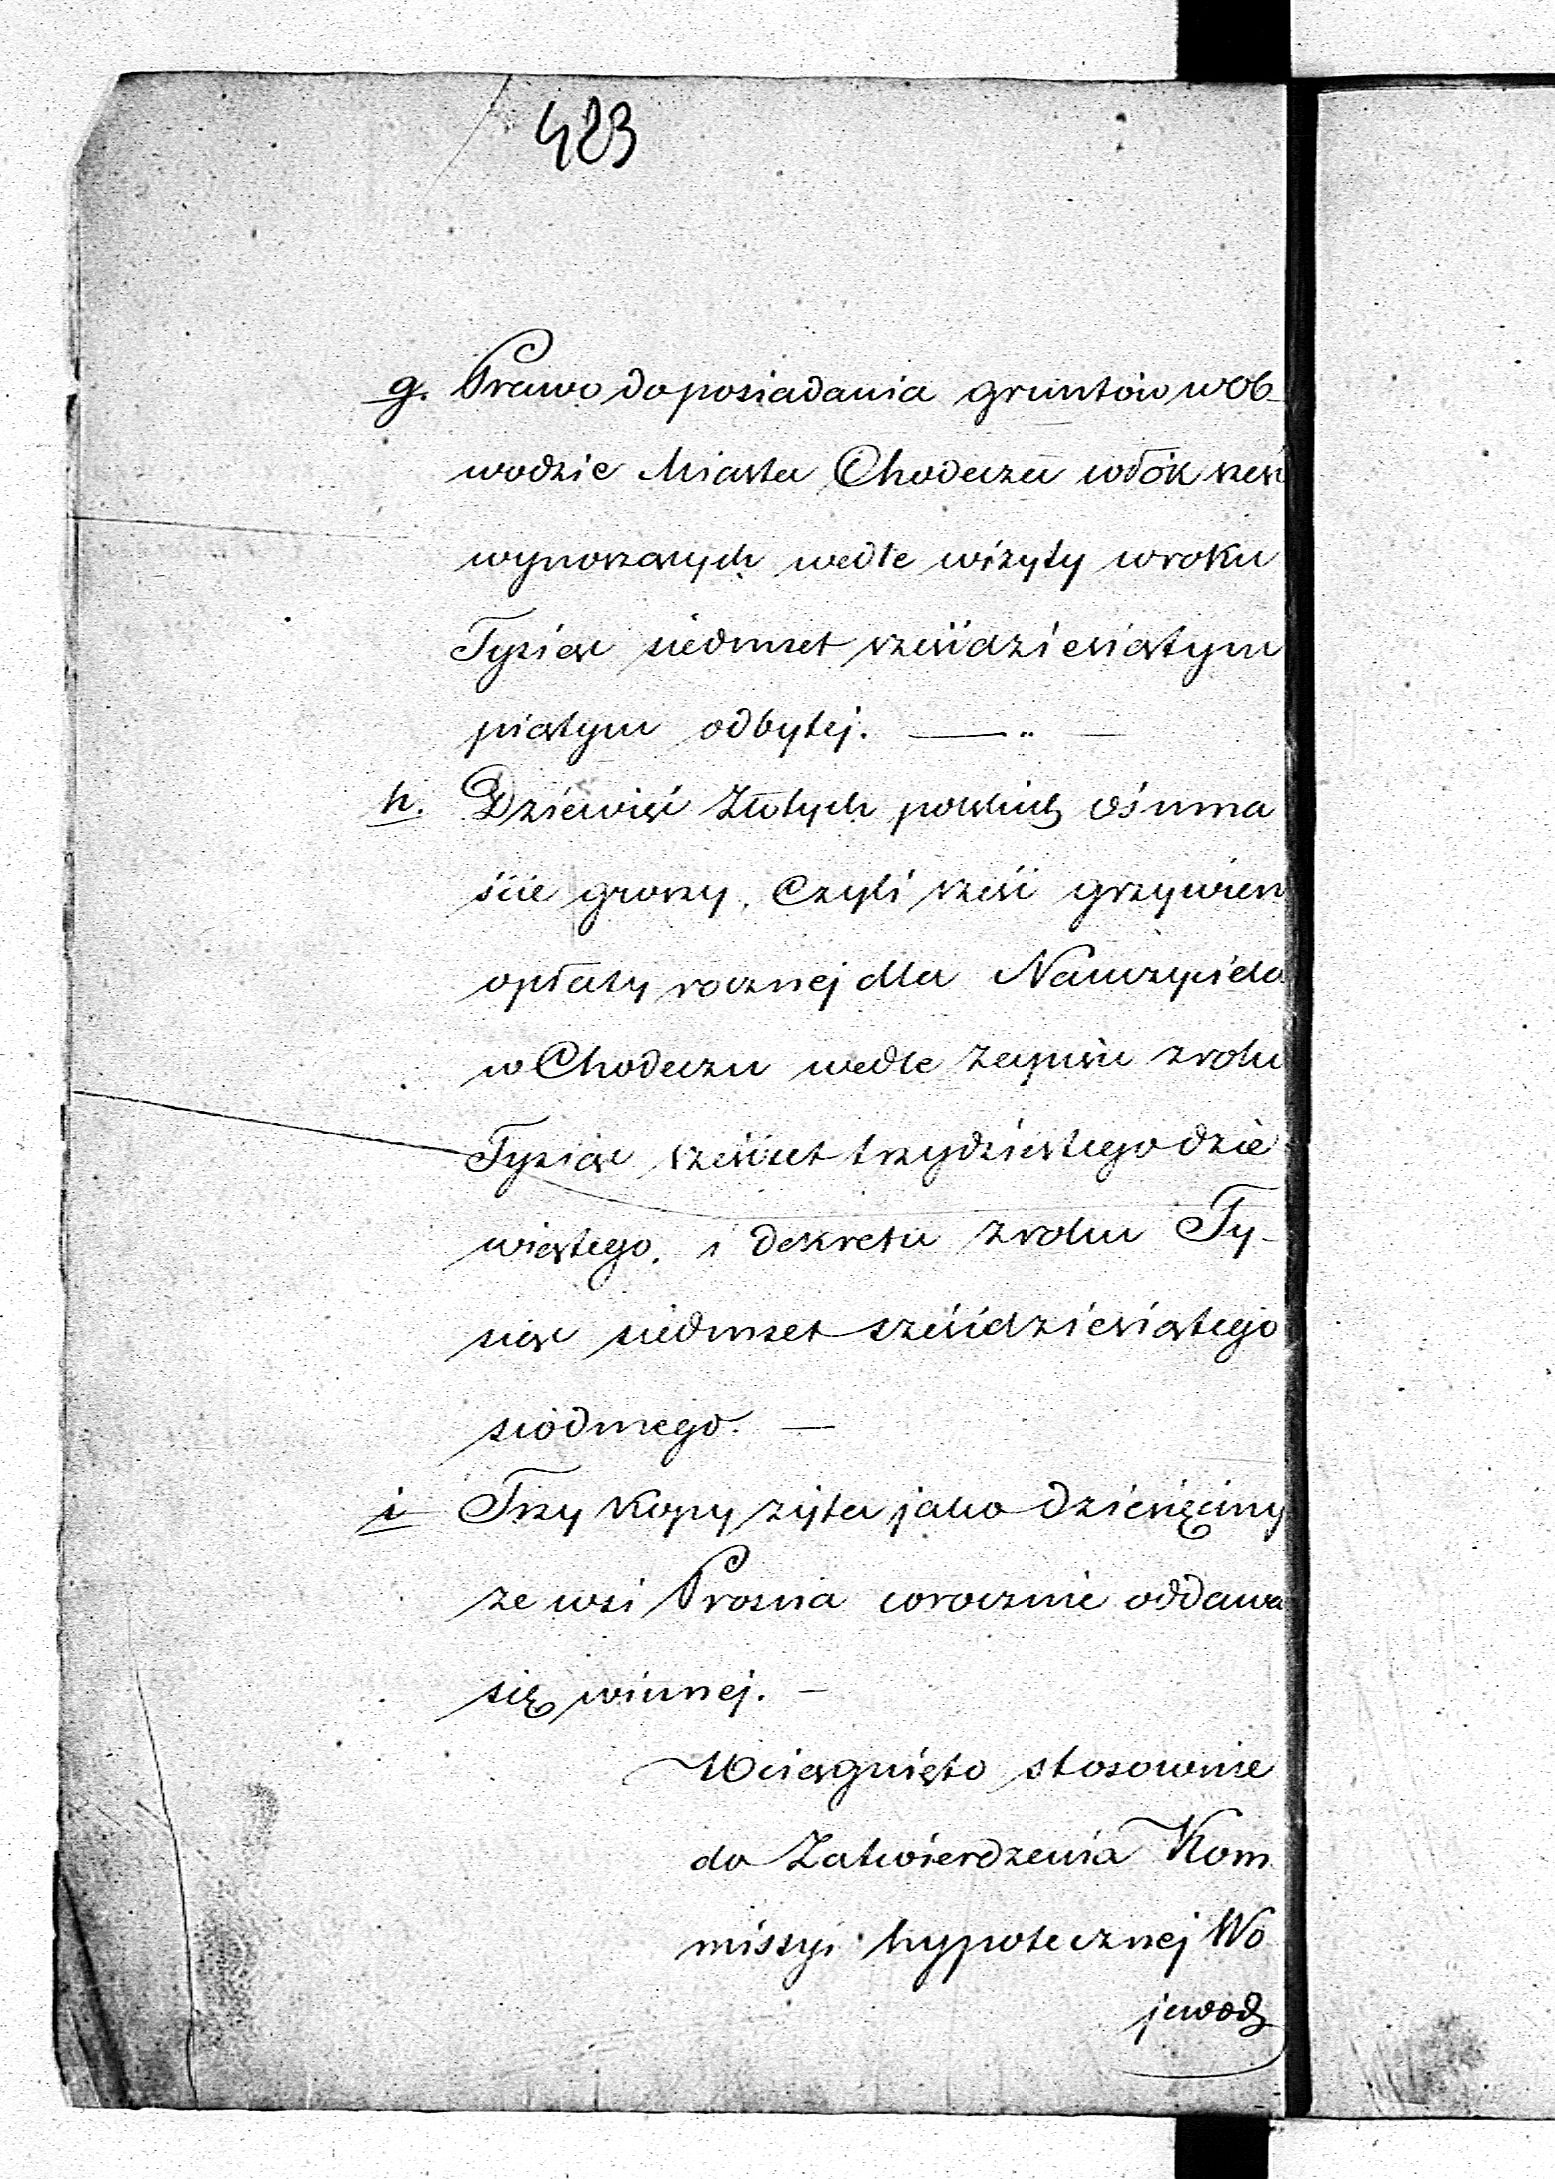 483
g. Prawo do posiadania gruntów w ob-
wodzie Miasta Chodecza włók sześć
wynoszących wedle wizyty w roku
Tysiąc siedmset sześćdziesiątym
piątym odbytej. — „ —
h. Dziewięć Złotych polskich ośmna
ście groszy, Czyli sześć grzywien
opłaty rocznej dla Nauczyciela
w Chodeczu wedle Zapisu z roku
Tysiąc sześćset trzydziestego dzie
wiątego, i dekretu z roku Ty-
siąc siedmset sześćdziesiątego
siódmego. —
i Trzy kopy żyta jako dziesięciny
ze wsi Prosna corocznie oddawa
się winnej. —
Wciągnięto stosownie
do Zatwierdzenia Kom
missyi hypotecznej Wo
jewodz